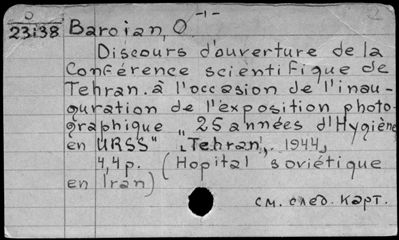 -1-
0
23138 Baroian, O
Discours d'ouverture de la
Conférence scientifique de
Tehran. à l'occasion de l'inau-
guration de l'exposition photo-
graphique „25 années d'Hygiène
en URSS" „Tehran", 1944,
4,4p. (Hopital soviétique
en Iran)
см. след. карт.